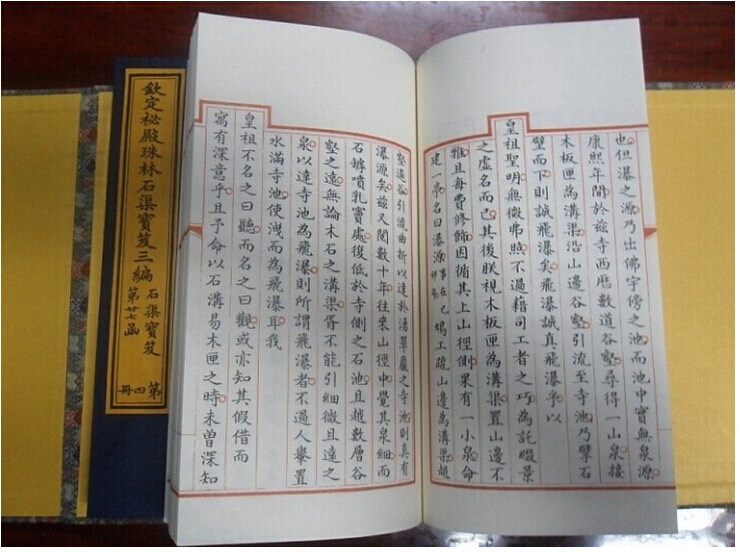 也但瀑之源乃出佛宇傍之池而池中實無泉源
康熙年間於兹寺西歷數道谷壑尋得一山泉接
木板匣為溝渠沿山邊谷壑引流至寺池乃擘石
壁而下則誠飛瀑矣飛瀑誠真飛瀑乎以
皇祖聖明無微弗照不過藉司工者之巧為託景
之虛名而已其後朕視木板匣為溝渠置山邊不
雅且每費修飾因循其上山徑側果有一小泉命
建一亭名曰瀑源事在己卯年鳩工疏山邊為溝渠越
壑過谷引流曲折以達於清翠巖之寺池則真有
瀑源矣兹又閱數十年往來山徑中覺其泉細而
石罅噴乳竇處復低於寺側之石池且越數層谷
壑之遠無論木石之溝渠胥不能引細微且遠之
泉以達寺池為飛瀑則所謂飛瀑者不過人轝置
水滿寺池使洩而為飛瀑耳我
皇祖不名之曰聽而名之曰觀或亦知其假借而
寓有深意乎且予命以石溝易木匣之時未曾深知
欽定祕殿珠林石渠寶笈三編
石渠寶笈
第廿七函
第四冊